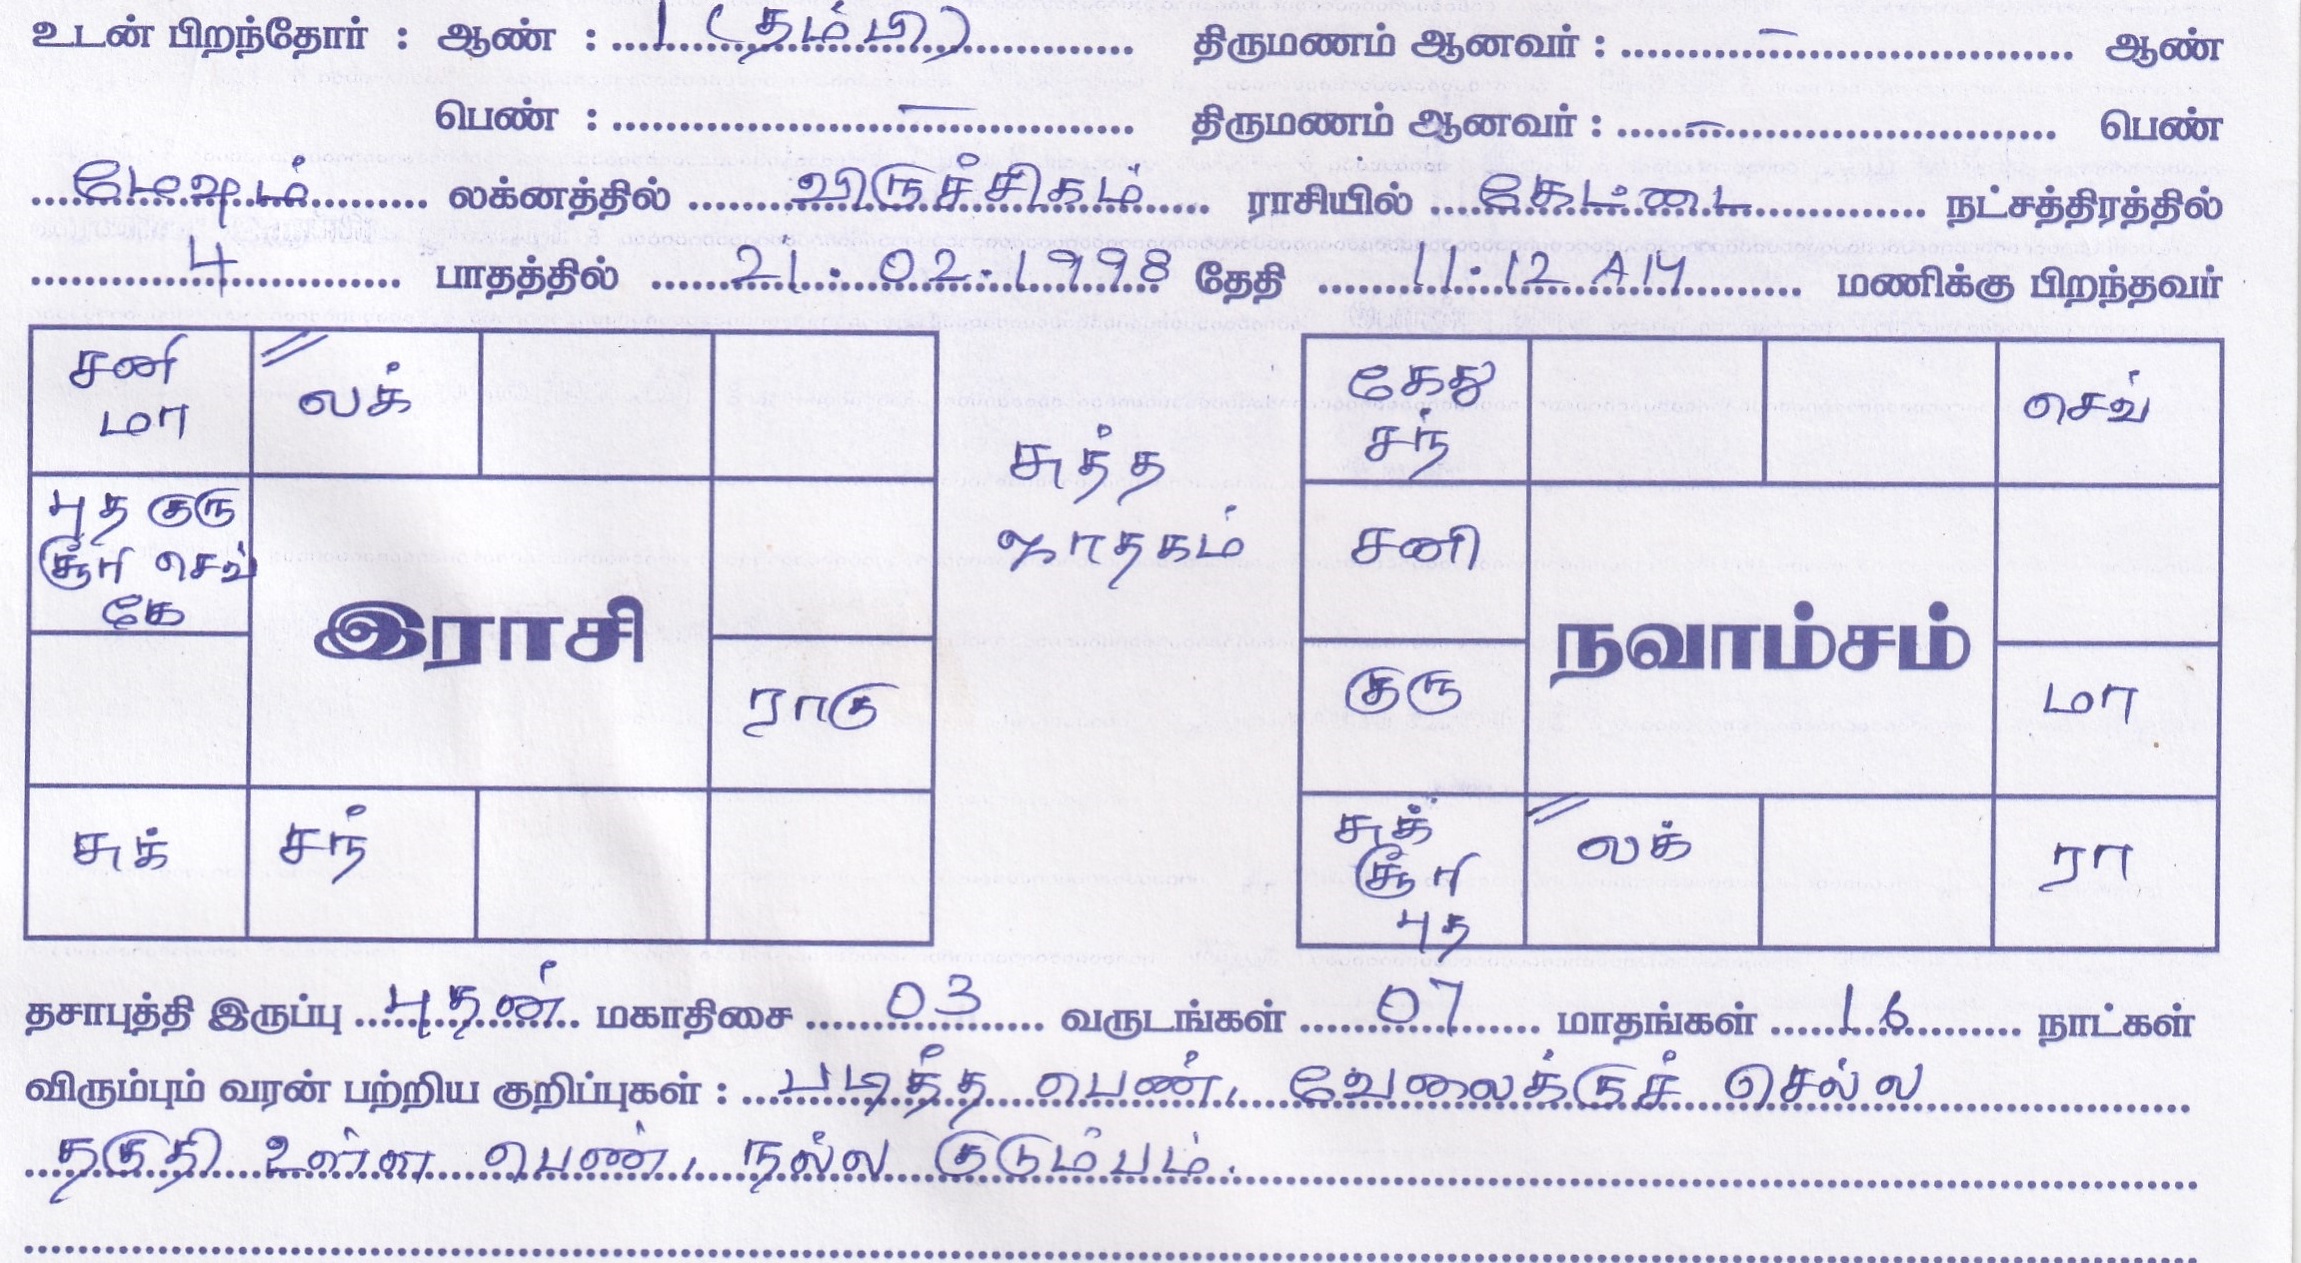 உடன் பிறந்தோர் : ஆண் : 1 (தம்பி) திருமணம் ஆனவர் : – ஆண்
பெண் : – திருமணம் ஆனவர் : – பெண்
மேஷம் லக்னத்தில் விருச்சிகம் ராசியில் கேட்டை நட்சத்திரத்தில்
4 பாதத்தில் 21.02.1998 தேதி 11.12 AM மணிக்கு பிறந்தவர்
சனி
மா
லக்
புத குரு
சூரி செவ்
கே
இராசி
ராகு
சுக்
சந்
சுத்த
ஜாதகம்
கேது
சந்
செவ்
சனி
நவாம்சம்
குரு
மா
சுக்
சூரி
புத
லக்
ரா
தசாபுத்தி இருப்பு புதன் மகாதிசை 03 வருடங்கள் 07 மாதங்கள் 16 நாட்கள்
விரும்பும் வரன் பற்றிய குறிப்புகள் : படித்த பெண், வேலைக்குச் செல்ல
தகுதி உள்ள பெண், நல்ல குடும்பம்.